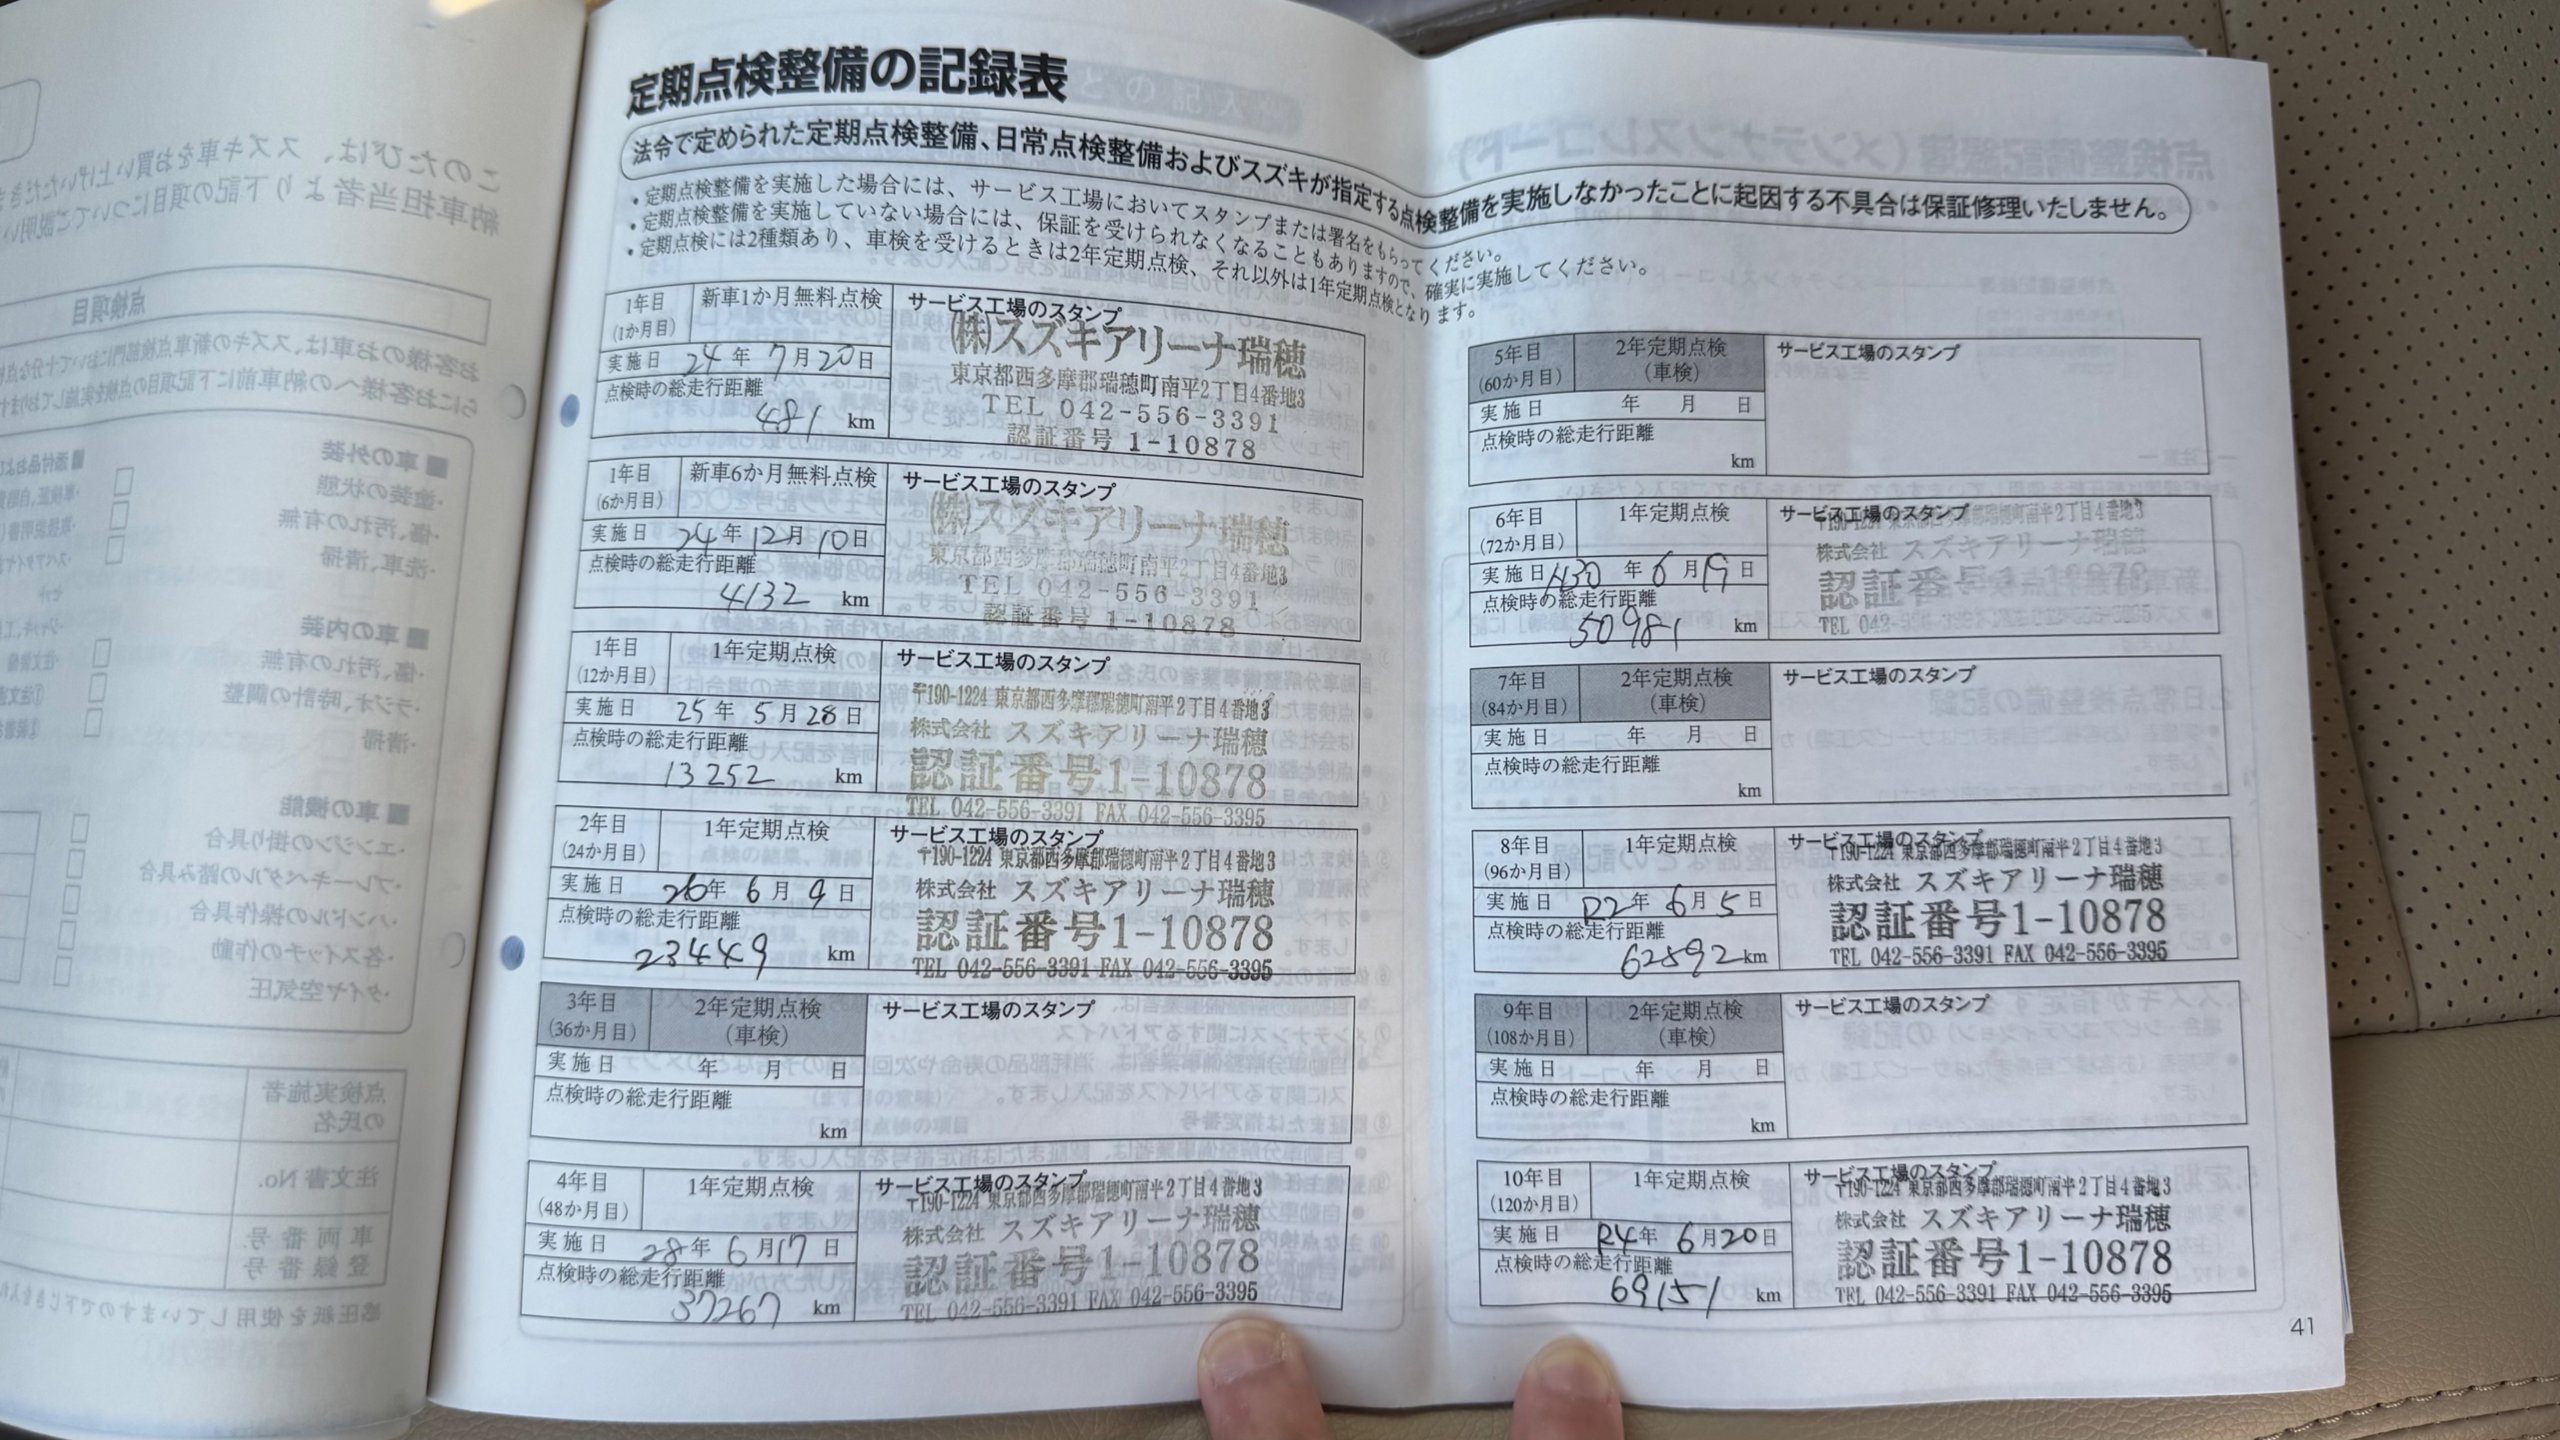 定期点検整備の記録表
法令で定められた定期点検整備、日常点検整備およびスズキが指定する点検整備を実施しなかったことに起因する不具合は保証修理いたしません。
・定期点検整備を実施した場合には、サービス工場においてスタンプまたは署名をもらってください。
・定期点検整備を実施していない場合には、保証を受けられなくなることもありますので、確実に実施してください。
・定期点検には2種類あり、車検を受けるときは2年定期点検、それ以外は1年定期点検となります。
1年目 (1か月目) 新車1か月無料点検 サービス工場のスタンプ
実施日 24年 7月20日
点検時の総走行距離
481 km
㈱スズキアリーナ瑞穂
東京都西多摩郡瑞穂町南平2丁目4番地3
TEL 042-556-3391
認証番号 1-10878
1年目 (6か月目) 新車6か月無料点検 サービス工場のスタンプ
実施日 24年12月10日
点検時の総走行距離
4132 km
㈱スズキアリーナ瑞穂
東京都西多摩郡瑞穂町南平2丁目4番地3
TEL 042-556-3391
認証番号 1-10878
1年目 (12か月目) 1年定期点検 サービス工場のスタンプ
実施日 25年 5月28日
点検時の総走行距離
13252 km
〒190-1224 東京都西多摩郡瑞穂町南平2丁目4番地3
株式会社 スズキアリーナ瑞穂
認証番号1-10878
TEL 042-556-3391 FAX 042-556-3395
2年目 (24か月目) 1年定期点検 サービス工場のスタンプ
実施日 26年 6月 9日
点検時の総走行距離
23449 km
〒190-1224 東京都西多摩郡瑞穂町南平2丁目4番地3
株式会社 スズキアリーナ瑞穂
認証番号1-10878
TEL 042-556-3391 FAX 042-556-3395
3年目 (36か月目) 2年定期点検 (車検) サービス工場のスタンプ
実施日 年 月 日
点検時の総走行距離
km
4年目 (48か月目) 1年定期点検 サービス工場のスタンプ
実施日 28年 6月17日
点検時の総走行距離
37267 km
〒190-1224 東京都西多摩郡瑞穂町南平2丁目4番地3
株式会社 スズキアリーナ瑞穂
認証番号1-10878
TEL 042-556-3391 FAX 042-556-3395
5年目 (60か月目) 2年定期点検 (車検) サービス工場のスタンプ
実施日 年 月 日
点検時の総走行距離
km
6年目 (72か月目) 1年定期点検 サービス工場のスタンプ
実施日 H30年 6月19日
点検時の総走行距離
50981 km
〒190-1224 東京都西多摩郡瑞穂町南平2丁目4番地3
株式会社 スズキアリーナ瑞穂
認証番号1-10878
TEL 042-556-3391 FAX 042-556-3395
7年目 (84か月目) 2年定期点検 (車検) サービス工場のスタンプ
実施日 年 月 日
点検時の総走行距離
km
8年目 (96か月目) 1年定期点検 サービス工場のスタンプ
実施日 R2年 6月 5日
点検時の総走行距離
62592 km
〒190-1224 東京都西多摩郡瑞穂町南平2丁目4番地3
株式会社 スズキアリーナ瑞穂
認証番号1-10878
TEL 042-556-3391 FAX 042-556-3395
9年目 (108か月目) 2年定期点検 (車検) サービス工場のスタンプ
実施日 年 月 日
点検時の総走行距離
km
10年目 (120か月目) 1年定期点検 サービス工場のスタンプ
実施日 R4年 6月20日
点検時の総走行距離
69151 km
〒190-1224 東京都西多摩郡瑞穂町南平2丁目4番地3
株式会社 スズキアリーナ瑞穂
認証番号1-10878
TEL 042-556-3391 FAX 042-556-3395
41